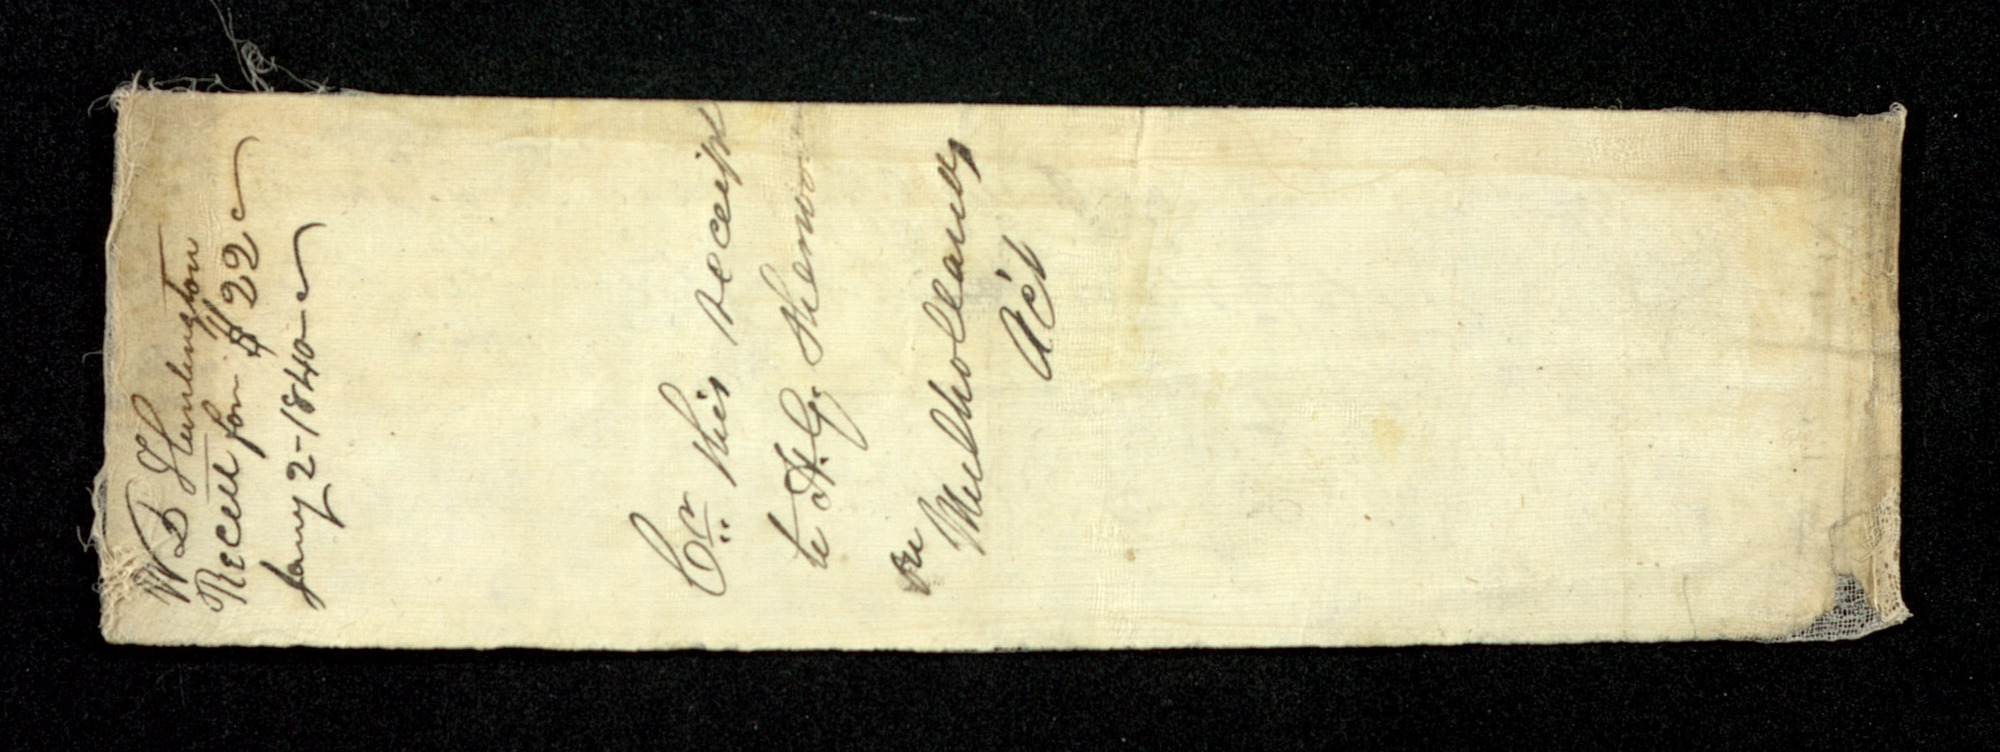 W B
Receit for $22
Jany 2 - 1840
Cr. this receipt
to H. G.
on
Mulhollands
Act